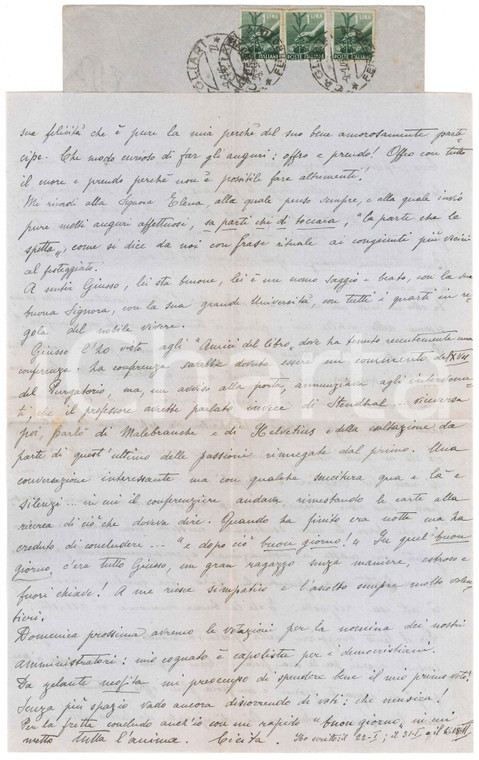 LIRE
POSTE ITALIANE
CAGLIARI
sua felicità che è pure la mia perchè del suo bene amorosamente parte
cipo. Che modo curioso di far gli auguri: offro e prendo! Offro con tutto
il cuore e prendo perchè non è possibile fare altrimenti!
Mi ricordi alla Signora Elena, alla quale penso sempre, e alla quale invio
pure molti auguri affettuosi, sa parti chi di toccara, "la parte che le
spetta", come si dice da noi con frase rituale ai congiunti più vicini
al festeggiato.
A sentir Giusso, lei sta benone, lei è un uomo saggio e beato, con la sua
buona Signora, con la sua grande Università, con tutti i quarti in re=
gola del nobile vivere.
Giusso l'ho visto agli "Amici del libro, dove ha tenuto recentemente una
conferenza. La conferenza sarebbe dovuta essere un commento del XVII
del Purgatorio, ma, un avviso alla porta, annunziava agli intervenu=
ti, che il professore avrebbe parlato invece di Stendhal. Viceversa
poi, parlò di Malebranche e di Helvetius e della esaltazione da
parte di quest'ultimo delle passioni rinnegate dal primo. Una
conversazione interessante ma con qualche scucitura qua e là e
silenzi... in cui il conferenziere andava rimestando le carte alla
ricerca di ciò che doveva dire. Quando ha finito era notte ma ha
creduto di concludere... "e dopo ciò buon giorno!" In quel buon
giorno, c'era tutto Giusso, un gran ragazzo senza maniere, estroso e
fuori chiave! A me riesce simpatico e l'ascolto sempre molto volen
tieri.
Domenica prossima avremo le votazioni per la nomina dei nostri
amministratori: mio cognato è capolista per i democristiani.
Da zelante neofita mi preoccupo di spendere bene il mio primo voto!
Senza più spazio vado ancora discorrendo di voti: che musica!
Per la fretta concludo anch'io con un rapido "buon giorno", in cui
metto tutta l'anima. Cicita. Ho scritto: il 22-I; il 31-I, e il